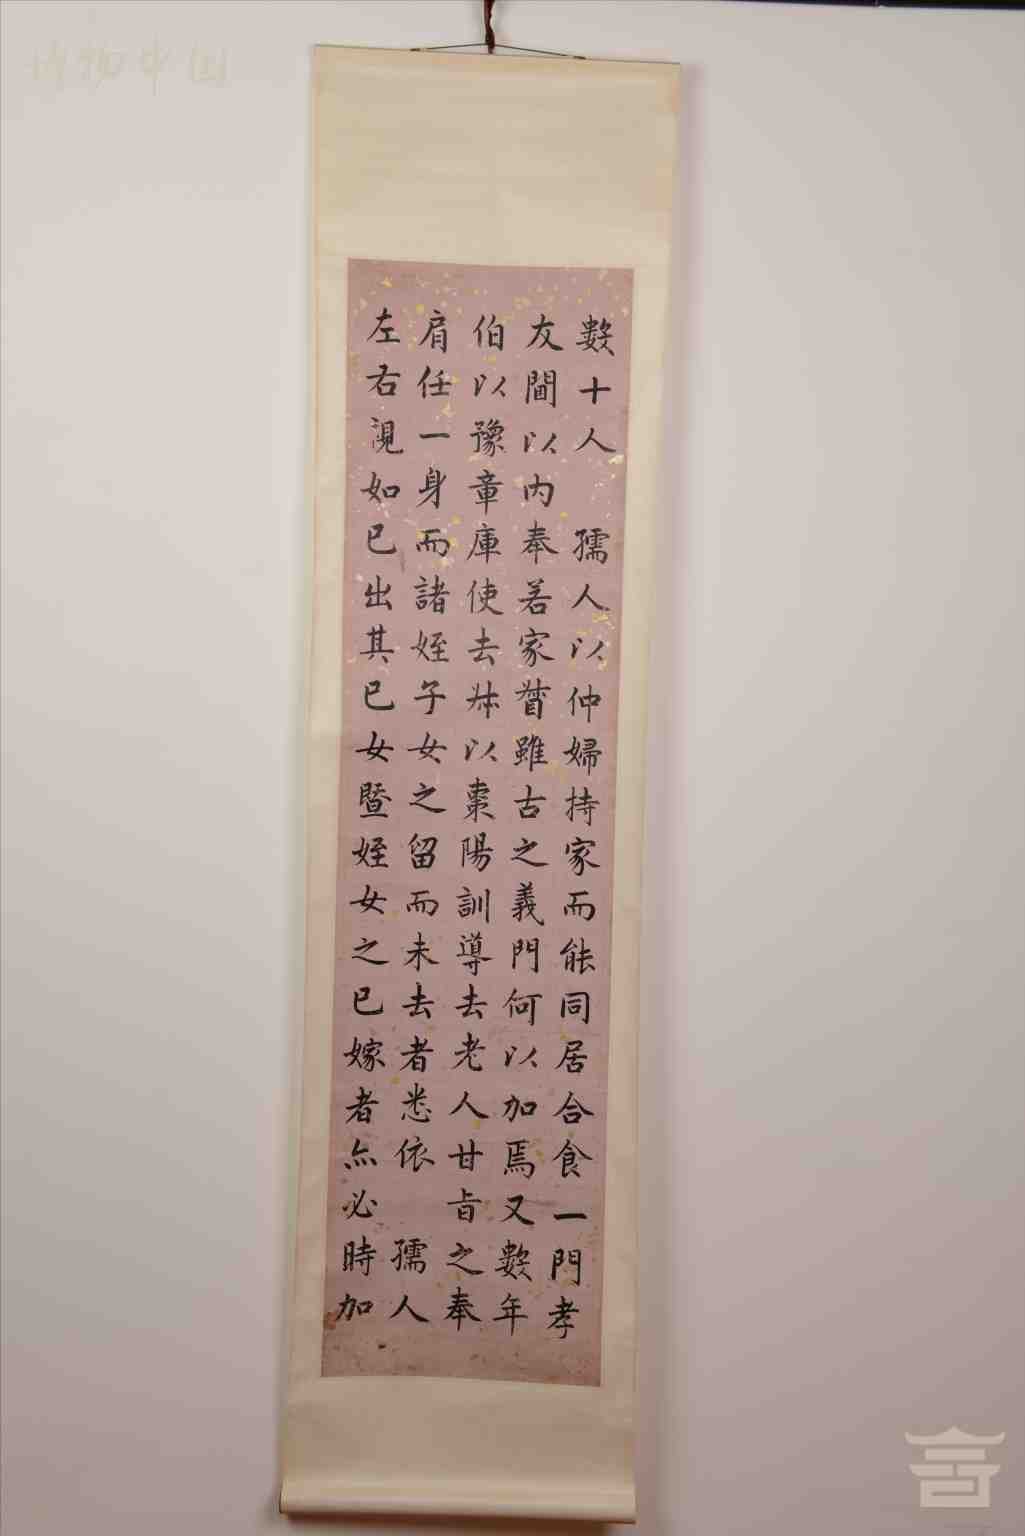 博物中国
數十人 孺人以仲婦持家而能同居合食一門孝
友間以内奉若家督雖古之義門何以加焉又數年
伯以豫章庫使去叔以棗陽訓導去老人甘旨之奉
肩任一身而諸姪子女之留而未去者悉依 孺人
左右視如已出其已女暨姪女之已嫁者亦必時加